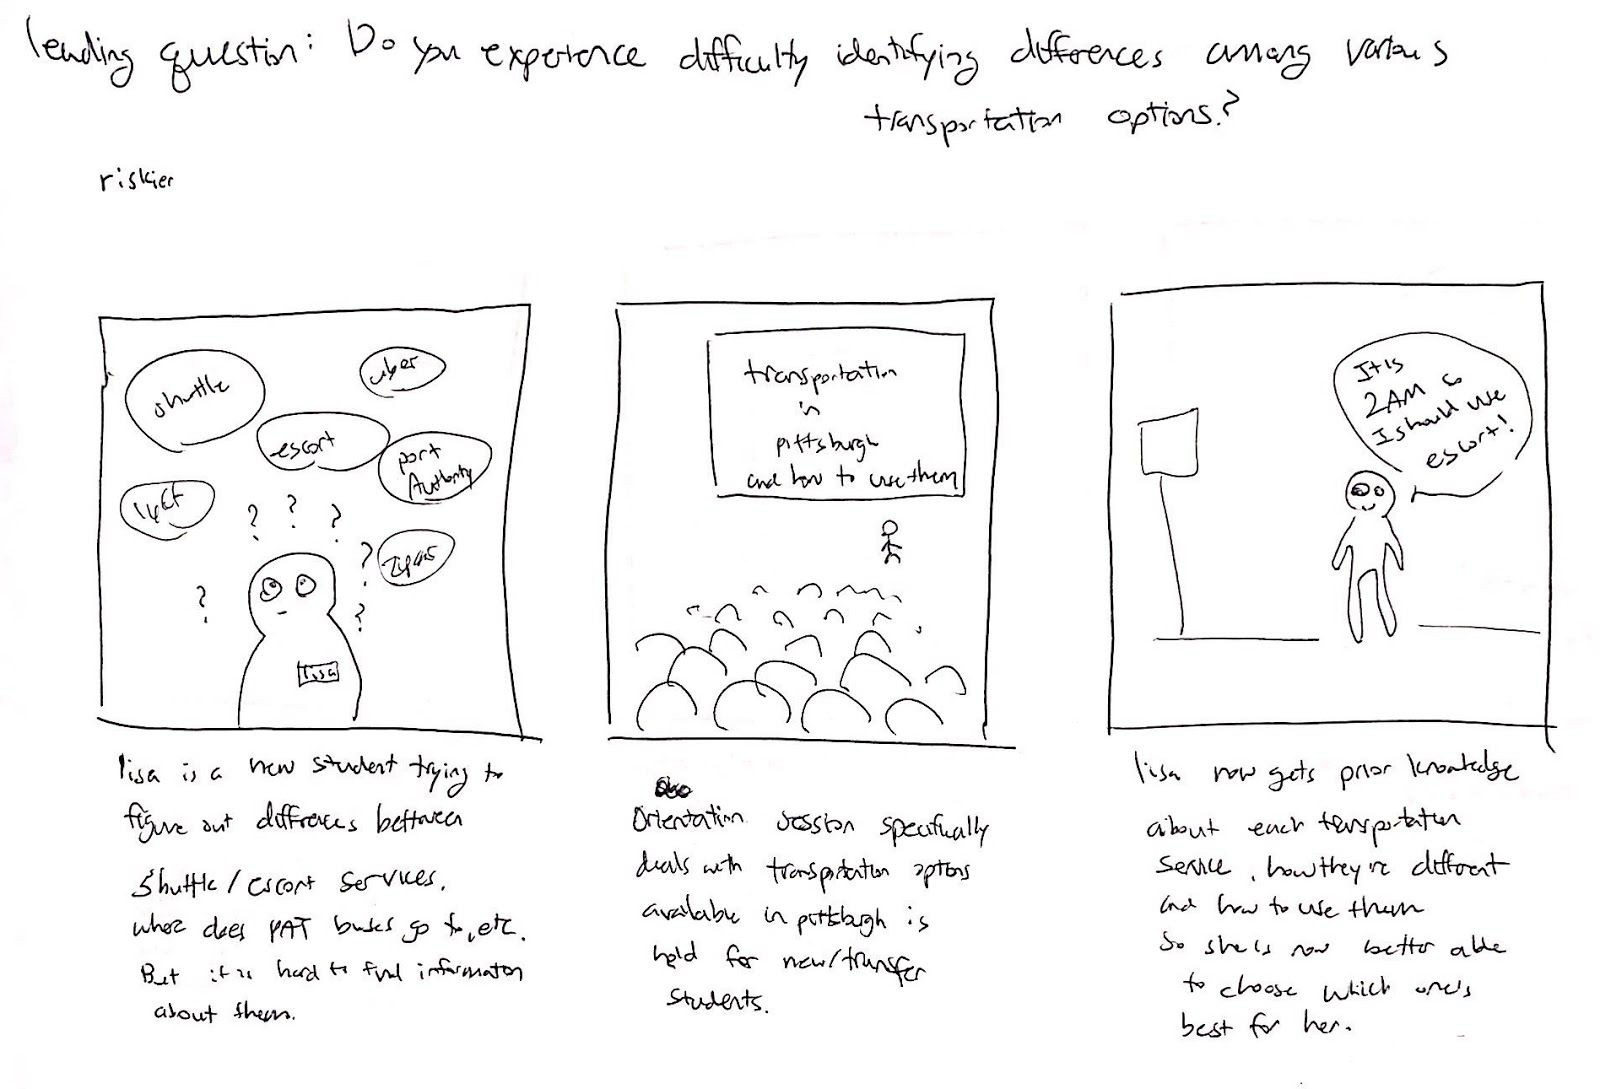 leading question: Do you experience difficulty identifying differences among various
transportation options?
riskier
shuttle
uber
escort
port
Authority
lyft
? ? ?
?
?
?
lisa
lisa is a new student trying to
figure out differences bettween
shuttle/escort services.
where does PAT buses go to, etc.
But it is hard to find information
about them.
transportation
in
pittsburgh
and how to use them
Orientation session specifically
deals with transportation options
available in pittsburgh is
held for new/transfer
students.
It is
2AM so
I should use
escort!
lisa now gets prior knowledge
about each transportation
service, how they're different
and how to use them
so she is now better able
to choose which one's
best for her.